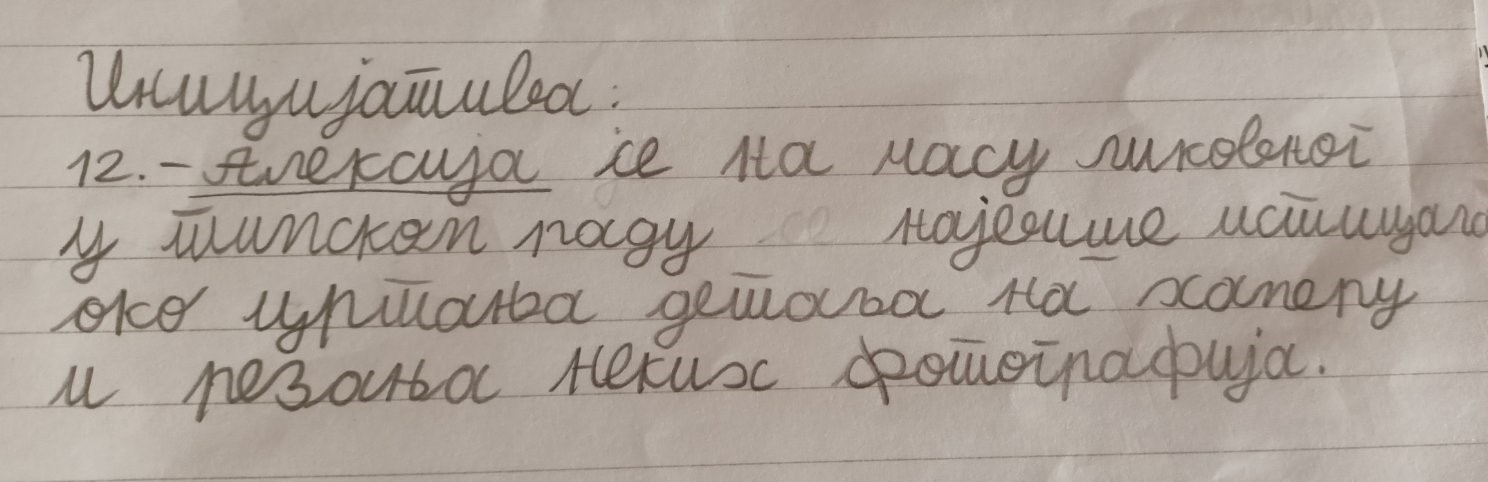 Иницијатива:
12. - Алексија се на часу ликовног
у тимском раду највише истицала
око цртања детаља на хамеру
и резања неких фотографија.